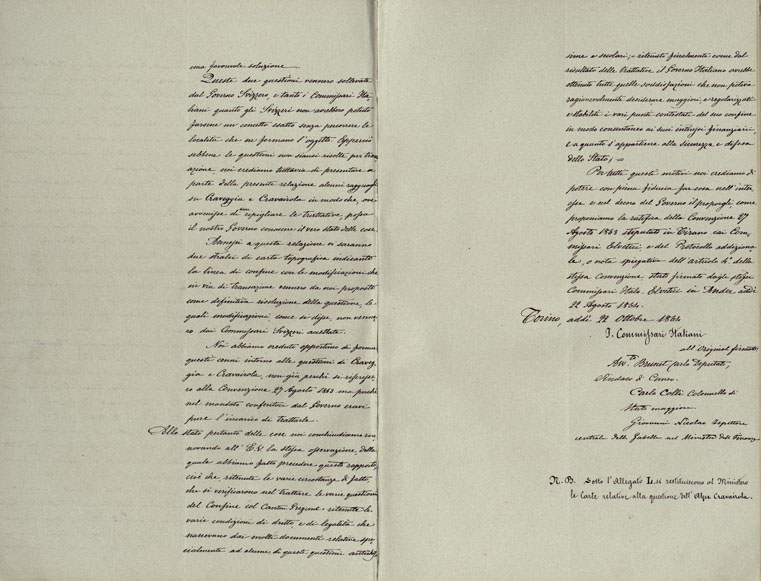 una favorevole soluzione
Queste due questioni vennero sollevate
dal Governo Svizzero, e tanto i Commissari Ita-
liani quanto gli Svizzeri non avrebbero potuto
farsene un concetto esatto senza percorrere le
località che ne formano l'oggetto. Epperciò
sebbene le questioni non siansi risolte per tran
azione, noi crediamo tuttavia di presentare a
parte della presente relazione alcuni ragguagli
su Craveggia e Cravairola in modo che, ove
avvenisse di ripigliare le trattative, possa
il nostro Governo conoscere il vero stato delle cose
Annessi a questa relazione vi saranno
due stralci di carta topografica indicanti
la linea di confine con le modificazioni che
in via di transazione vennero da noi proposte
come definitiva risoluzione della questione, le
quali modificazioni come si disse, non venne
ro dai Commissari Svizzeri accettate.
Noi abbiamo creduto opportuno di fornire
questi cenni intorno alle questioni di Craveg
gia e Cravairola, non già perchè si riferisca
no alla Convenzione 27 Agosto 1863 ma perchè
nel mandato conferitoci dal Governo eravi
pure l'incarico di trattarle.
Allo stato pertanto delle cose noi conchiudiamo rin
novando all' E.V. la stessa osservazione, dalla
quale abbiamo fatto precedere questo rapporto,
cioè che, ritenute le varie circostanze di fatto,
che si verificarono nel trattare le varie questioni
del Confine col Canton Grigione - ritenute le
varie condizioni di diritto e di legalità che
nascevano dai molti documenti relativi spe
cialmente ad alcune di queste questioni
sime e secolari; - ritenuto finalmente come dal
risultato delle trattative il Governo Italiano avrebbe
ottenuto tutte quelle soddisfazioni che non poteva
ragionevolmente desiderare maggiori, e regolarizzati
e stabiliti i vari punti contestati del suo confine
in modo consentaneo ai suoi interessi finanziari
e a quanto s'appartiene alla sicurezza e difesa
dello Stato; =
Per tutti questi motivi noi crediamo di
potere con piena fiducia far cosa nell'inte
resse e nel decoro del Governo il proporgli, come
proponiamo la ratifica della Convenzione 27
Agosto 1863 stipulata in Tirano coi Com
missari Elvetici, e del Protocollo addiziona
le, o nota spiegativa dell'articolo 4º della
stessa Convenzione stato firmato dagli stessi
Commissari Italo Elvetici in Andeer addì
22 Agosto 1864.
Torino, addì 22 Ottobre 1864
I. Commissari Italiani
all'Original firmati
Avv.to Brunet Carlo Deputato,
Sindaco di Cuneo.
Carlo Colli Colonnello di
Stato maggiore
Giovanni Nicolao Ispettore
centrale delle Gabelle nel Ministero delle Finanze
N. B. Sotto l'Allegato L, si restituiscono al Ministero
le carte relative alla questione dell'Alpe Cravairola.